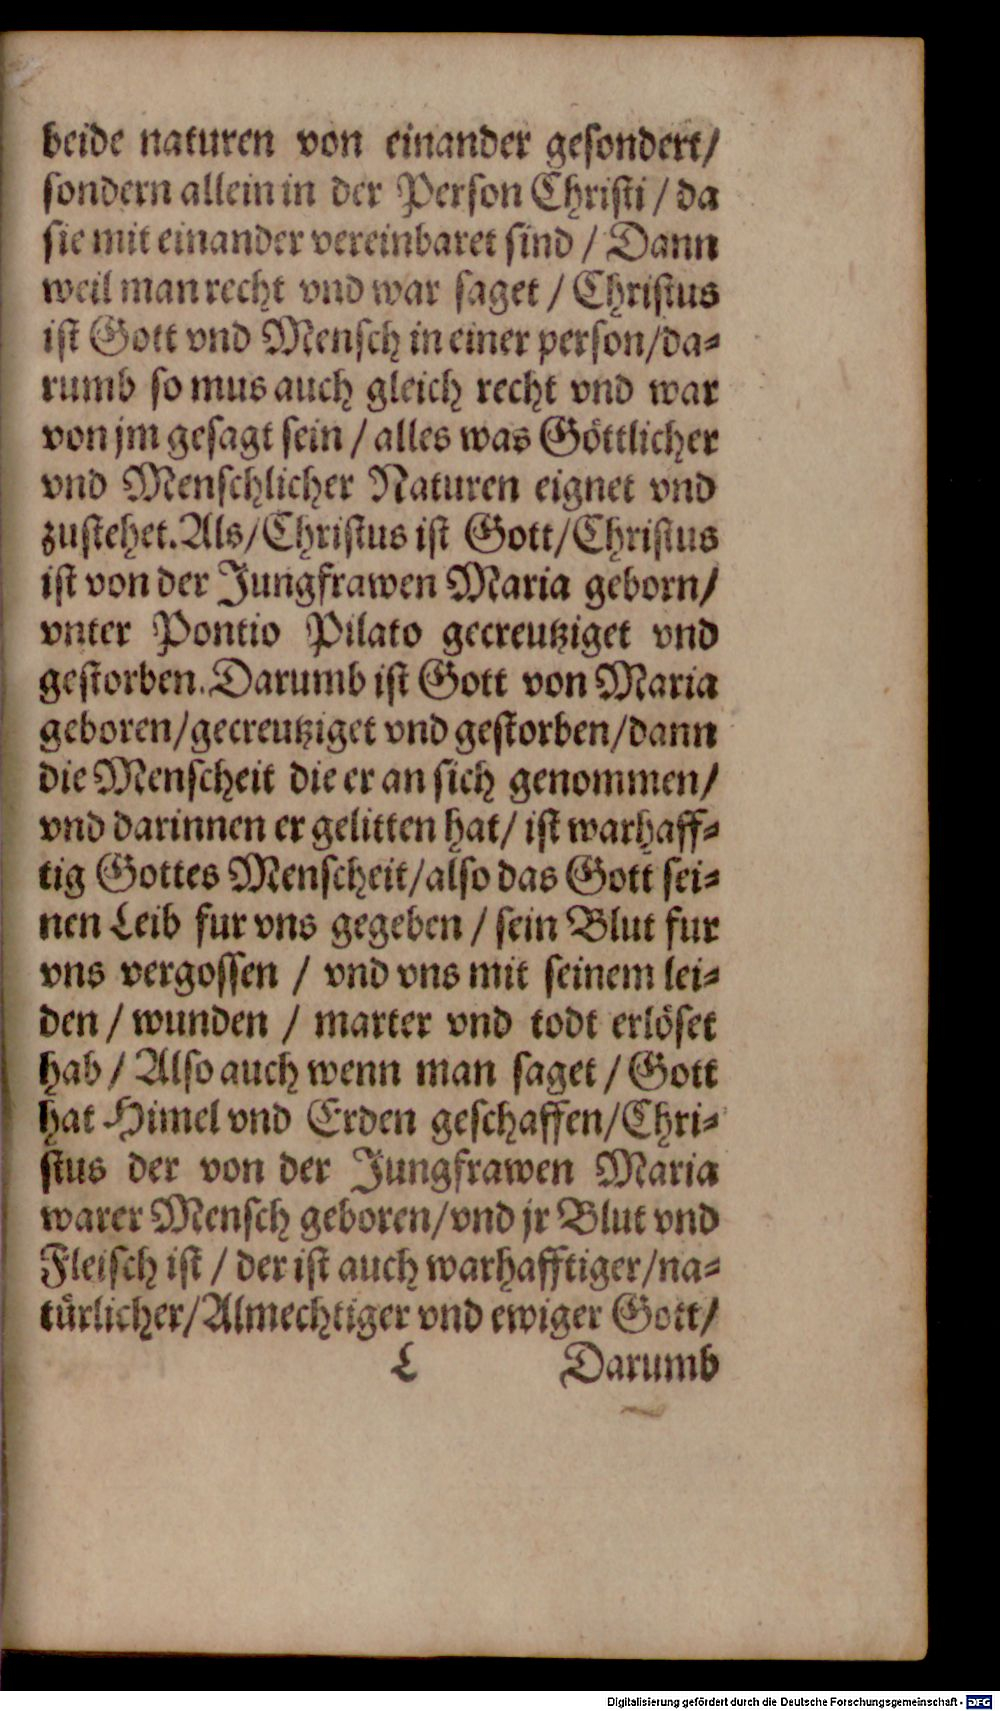 beide naturen von einander geſondert/
ſondern allein in der Perſon Chriſti / da
ſie mit einander vereinbaret ſind / Dann
weil man recht vnd war ſaget / Chriſtus
iſt Gott vnd Menſch in einer perſon/da⸗
rumb ſo mus auch gleich recht vnd war
von jm geſagt ſein / alles was Göttlicher
vnd Menſchlicher Naturen eignet vnd
zuſtehet. Als/Chriſtus iſt Gott/Chriſtus
iſt von der Jungfrawen Maria geborn/
vnter Pontio Pilato gecreutziget vnd
geſtorben. Darumb iſt Gott von Maria
geboren/gecreutziget vnd geſtorben/dann
die Menſcheit die er an ſich genommen/
vnd darinnen er gelitten hat/ iſt warhaff⸗
tig Gottes Menſcheit/alſo das Gott ſei⸗
nen Leib fur vns gegeben / ſein Blut fur
vns vergoſſen / vnd vns mit ſeinem lei⸗
den / wunden / marter vnd todt erlöſet
hab / Alſo auch wenn man ſaget / Gott
hat Himel vnd Erden geſchaffen/Chri⸗
ſtus der von der Jungfrawen Maria
warer Menſch geboren/vnd jr Blut vnd
Fleiſch iſt / der iſt auch warhafftiger/na⸗
türlicher/Almechtiger vnd ewiger Gott/
L Darumb
Digitalisierung gefördert durch die Deutsche Forschungsgemeinschaft - DFG